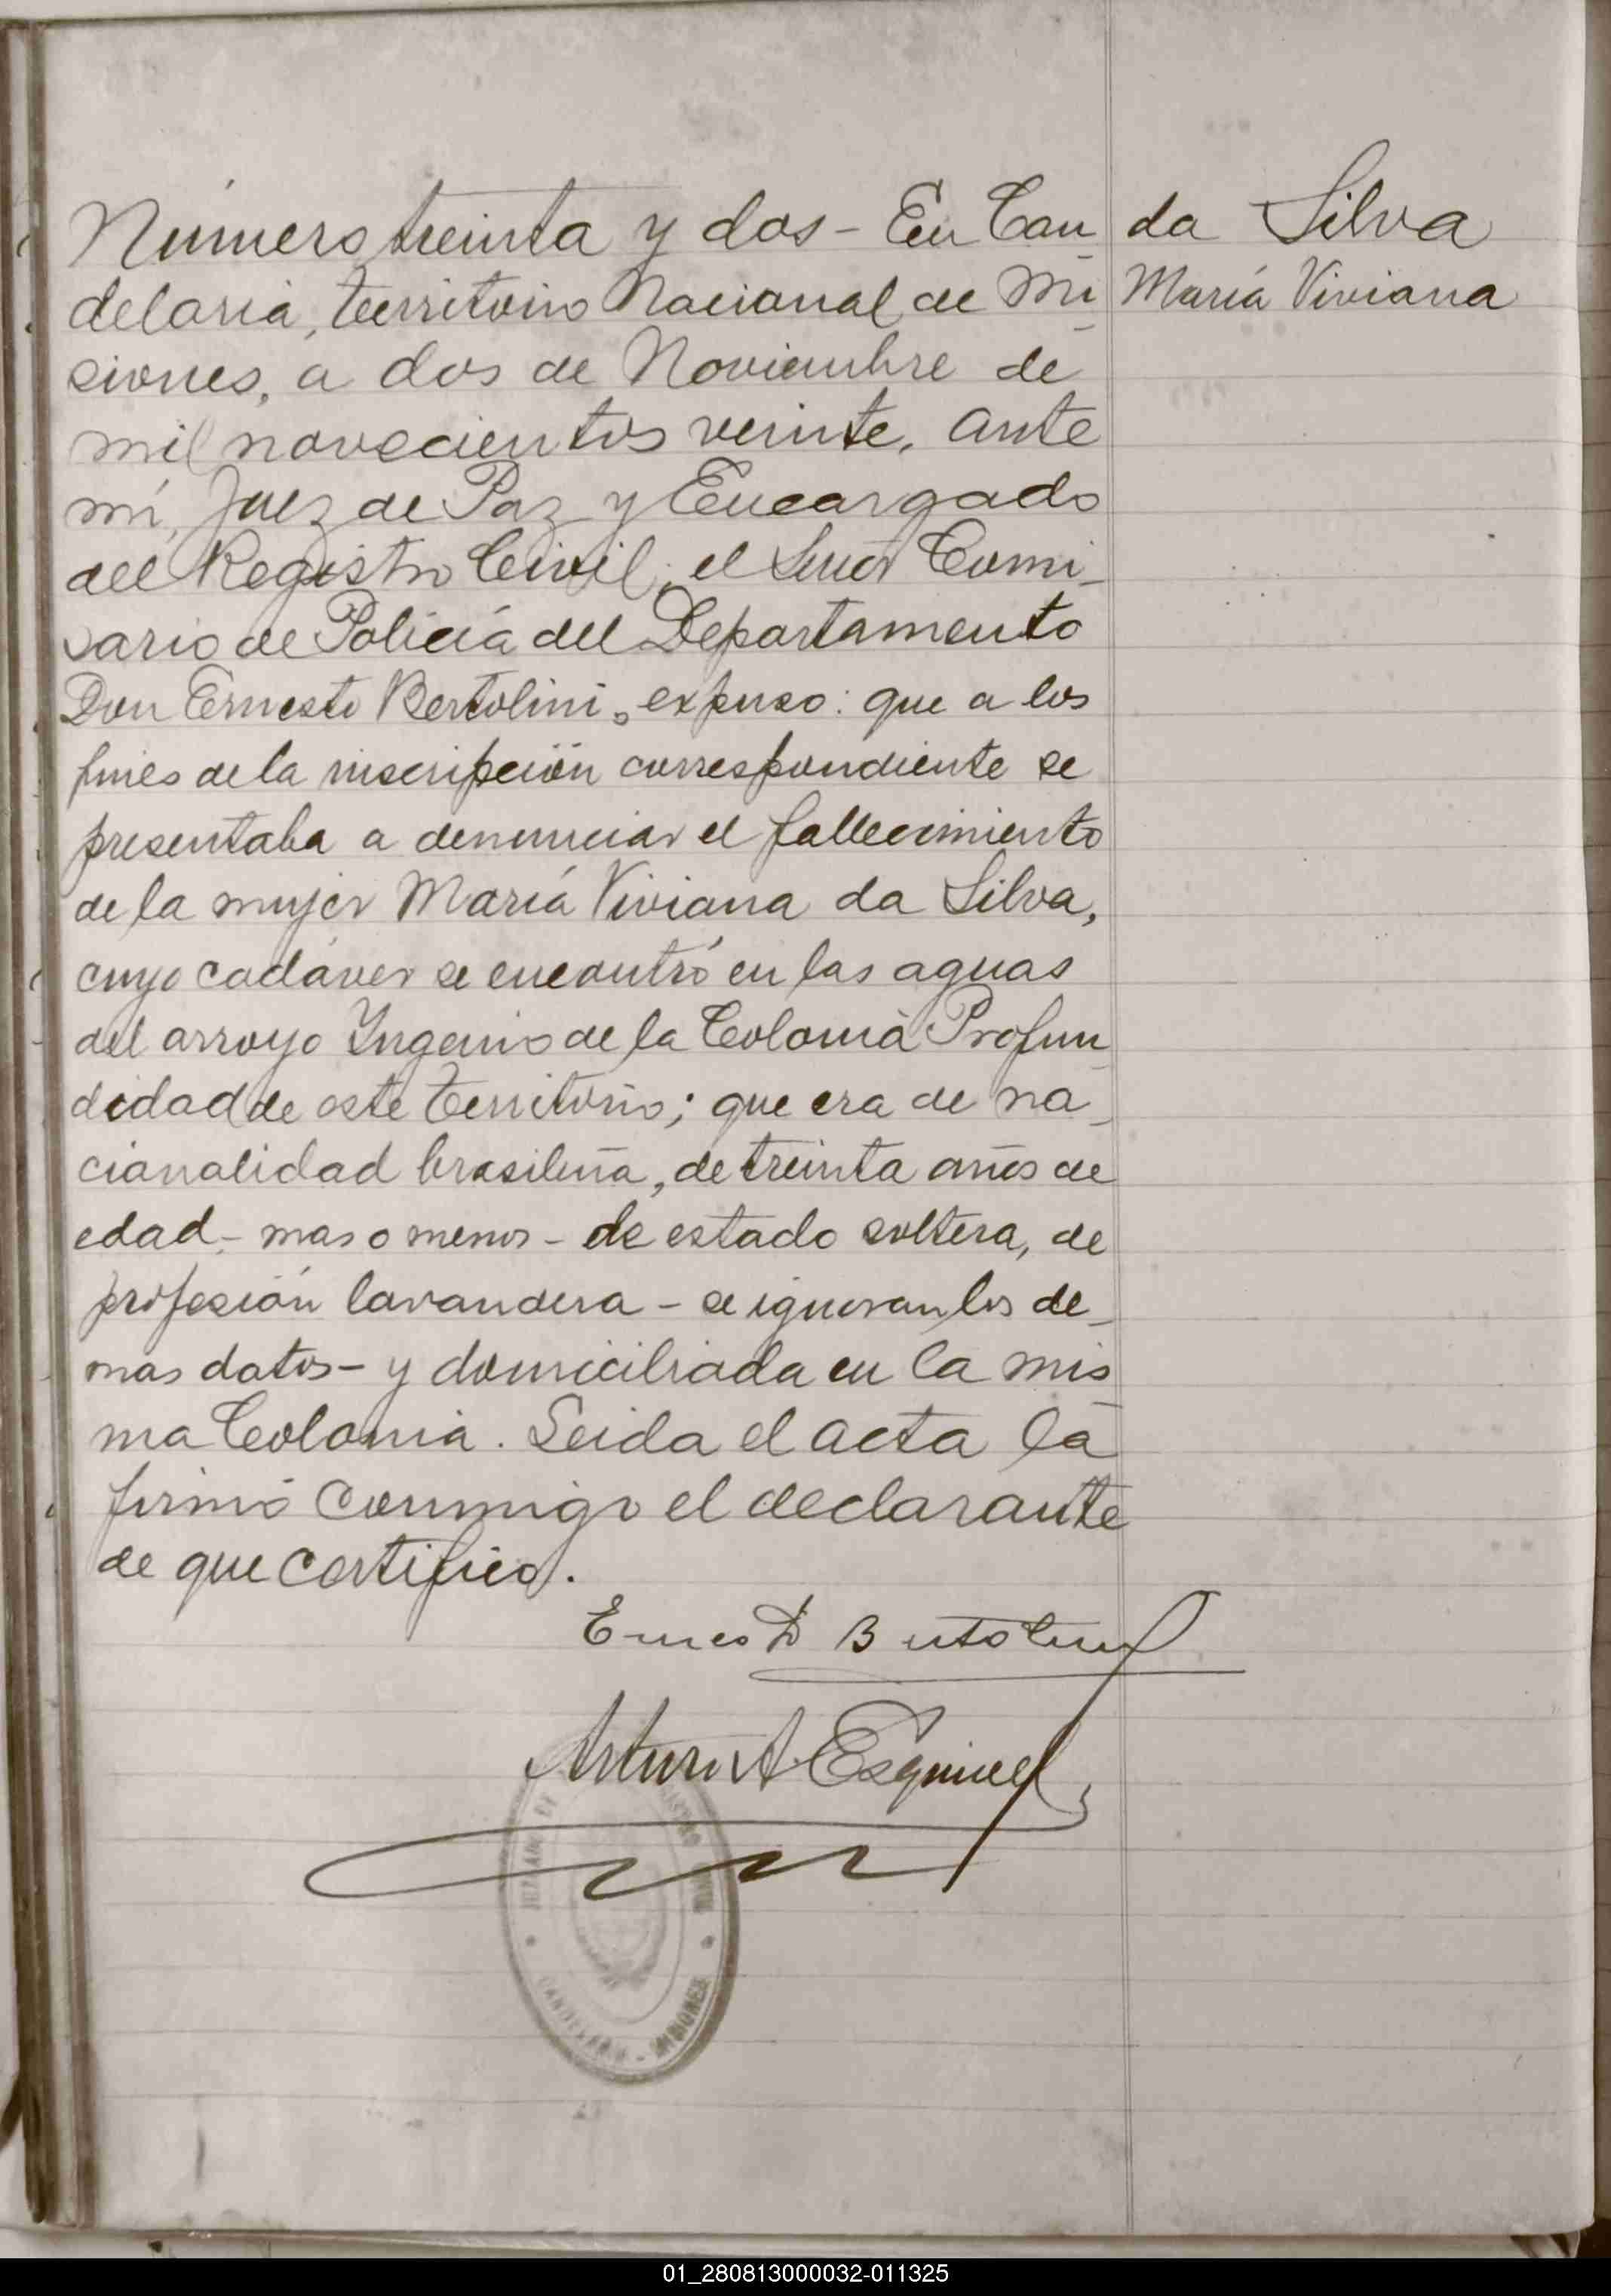 Número treinta y dos - En Can
delaria, territorio Nacional de Mi
siones, a dos de Noviembre de
mil novecientos veinte, ante
mí, Juez de Paz y Encargado
del Registro Civil, el Señor Comi-
sario de Policía del Departamento
Don Ernesto Bertolini, expuso: que a los
fines de la inscripción correspondiente se
presentaba a denunciar el fallecimiento
de la mujer María Viviana da Silva,
cuyo cadáver se encontró en las aguas
del arroyo Ingenio de la Colonia Profun
didad de este territorio; que era de na-
cionalidad brasileña, de treinta años de
edad - mas o menos - de estado soltera, de
profesión lavandera - se ignoran los de-
mas datos - y domiciliada en la mis
ma Colonia. Leida el acta la
firmó conmigo el declarante
de que certifico.
da Silva
María Viviana
Ernesto Bertolini
Arturo A Esquivel
JUZGADO DE
REGISTRO CIVIL
CANDELARIA - MISIONES
01_280813000032-011325